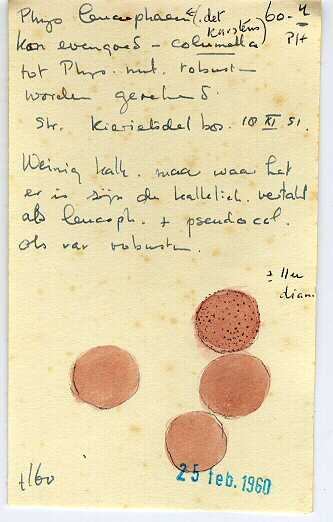 Physo leucophaea (det Karstens) 60-4
kan evengoed – columella P/+
tot Phys. nut. robusta
worden gerekend.
Str. bos. 18 XI 51.
Weinig kalk. maar waar het
er is zijn de kalklich. vertakt
als leucoph. + pseudocol.
als var robusta.
± 11u
diam.
t/60
25 feb. 1960